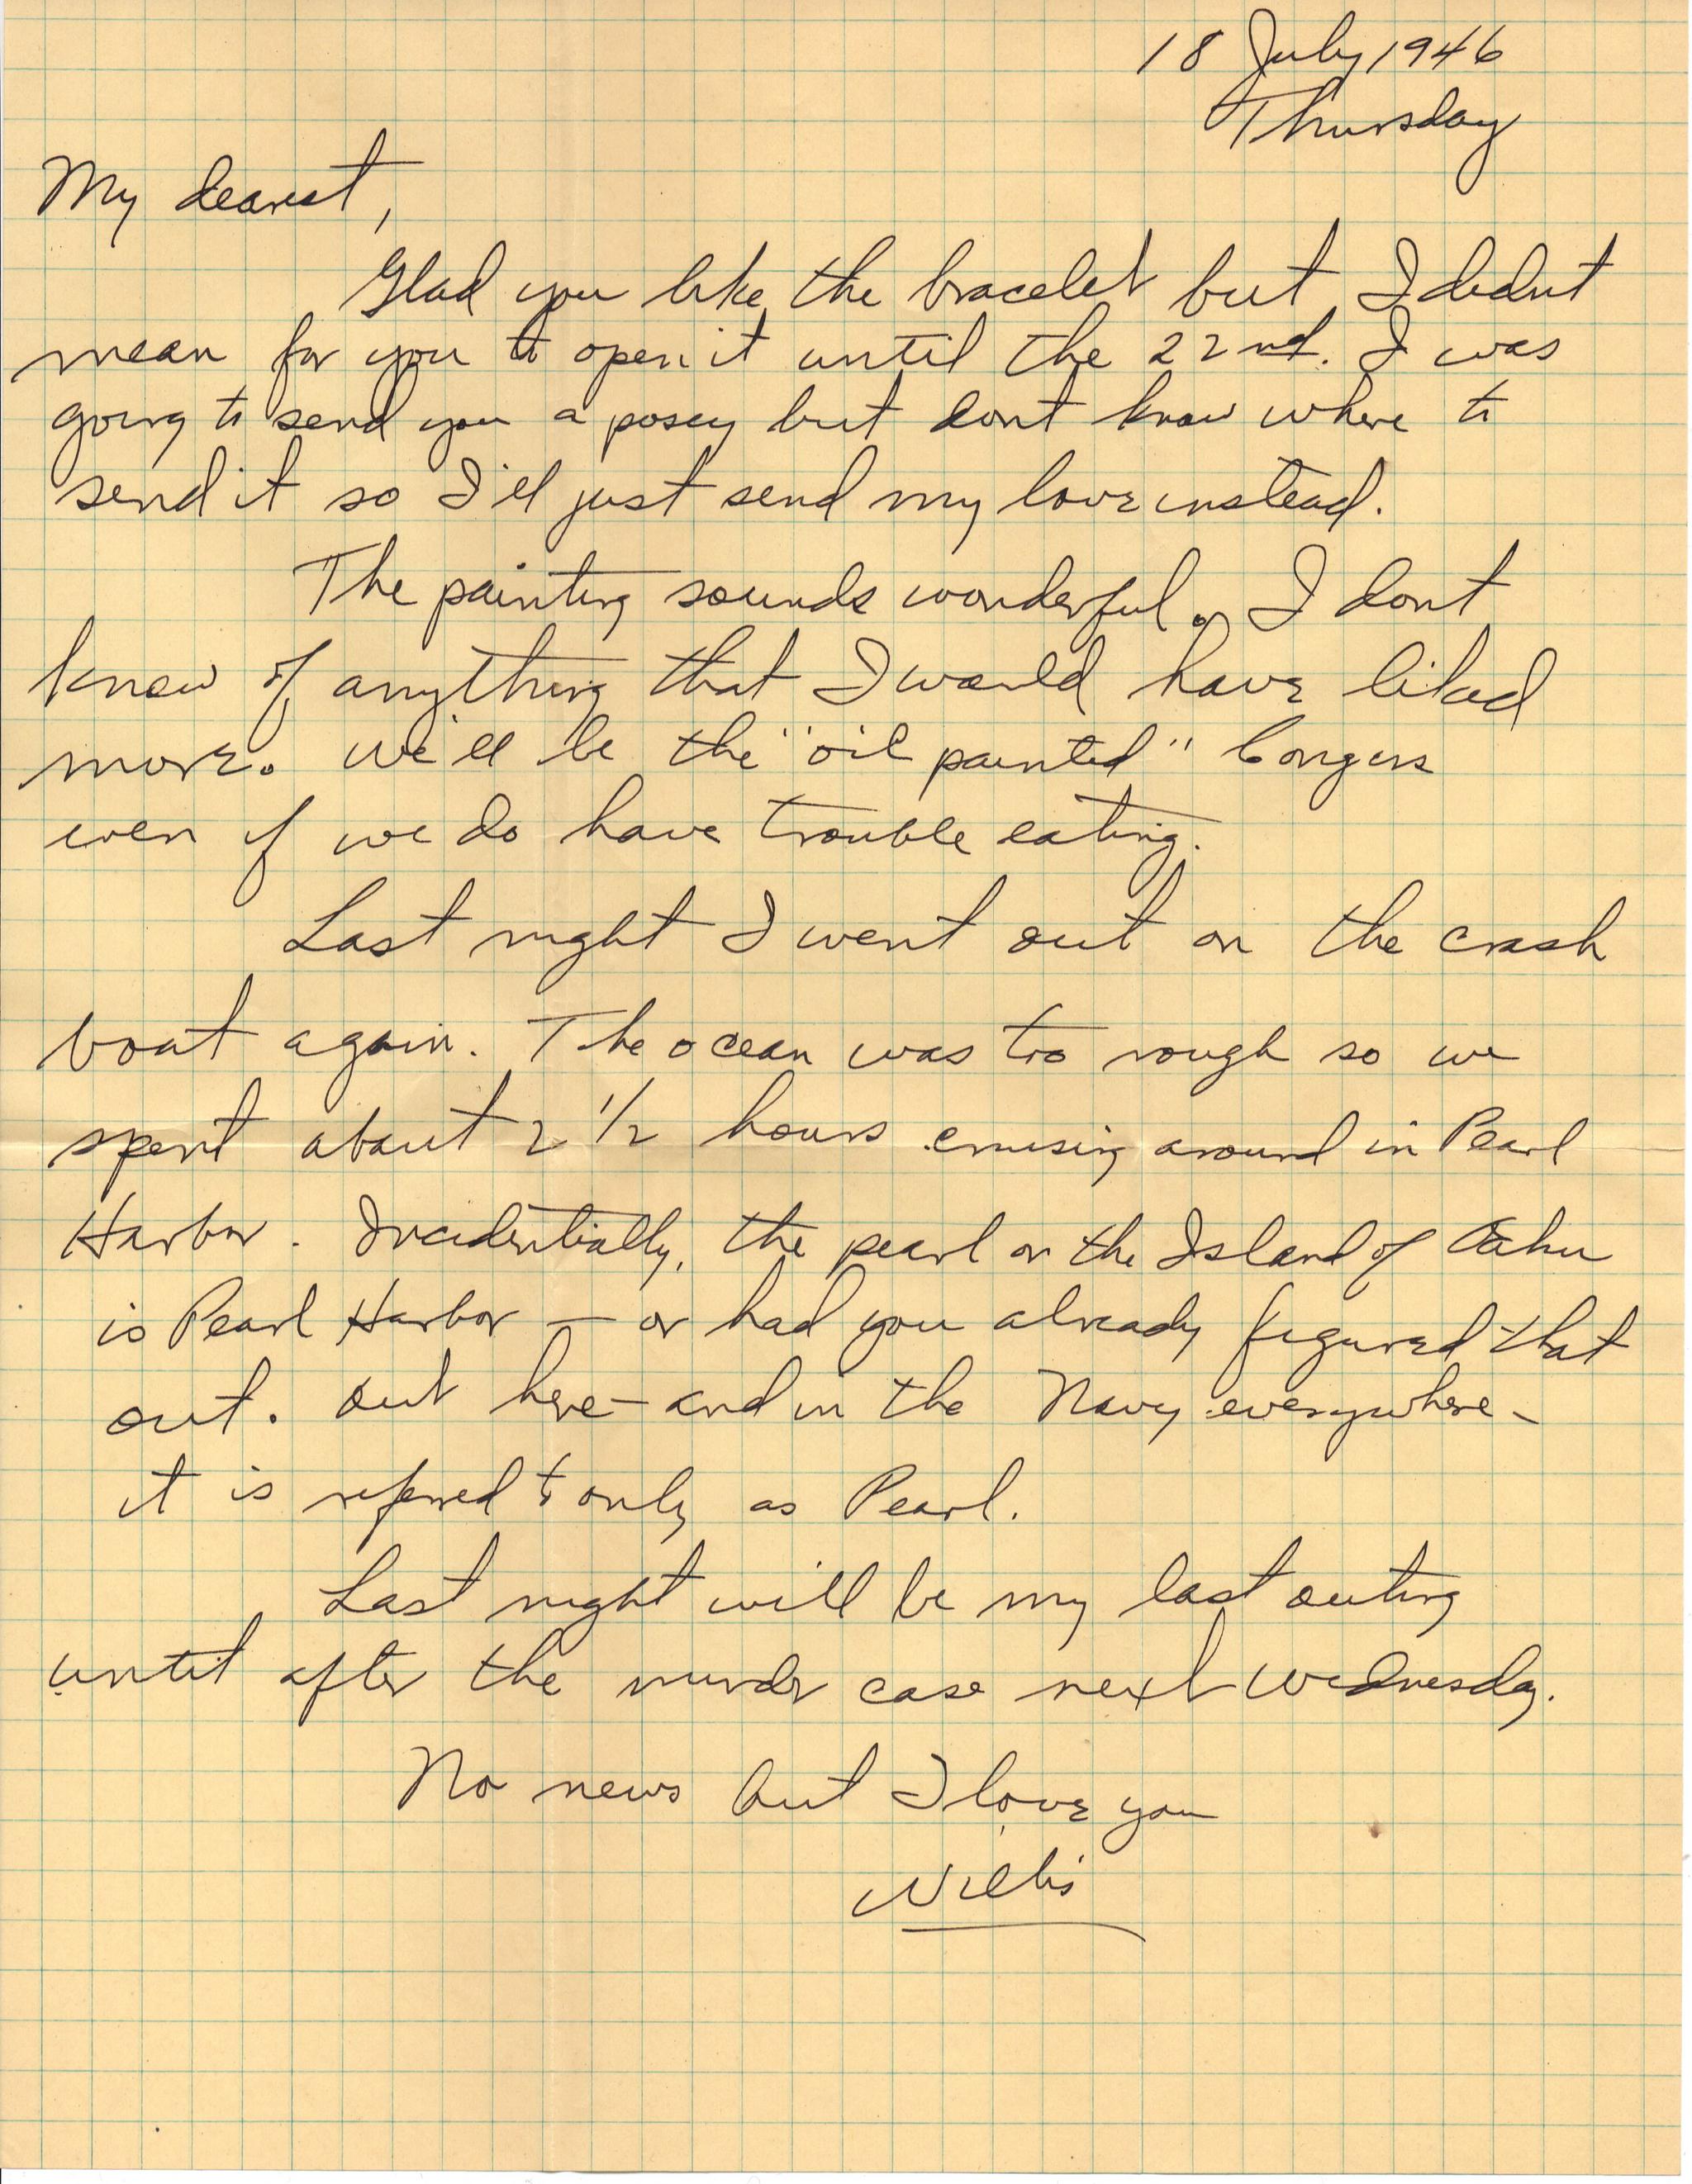 18 July 1946
Thursday
My dearest,
Glad you like the bracelet but I didnt
mean for you to open it until the 22nd. I was
going to send you a posey but dont know where to
send it so I'll just send my love instead.
The painting sounds wonderful. I dont
know of anything that I would have liked
more. We'll be the "oil painted" Congers
even if we do have trouble eating.
Last night I went out on the crash
boat again. The ocean was too rough so we
spent about 2 1/2 hours cruising around in Pearl
Harbor. Incidentially, the pearl on the Island of Oahu
is Pearl Harbor — or had you already figured that
out. Out here — and in the Navy everywhere -
it is referred to only as Pearl.
Last night will be my last outing
until after the murder case next Wednesday.
No news but I love you
Willis